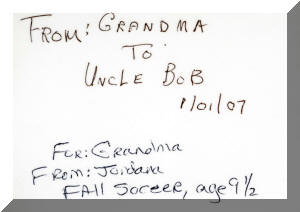 FROM: GRANDMA
TO
UNCLE BOB
1/01/07
FOR: Grandma
FROM: Jordana
FAll Soccer, age 9 1/2